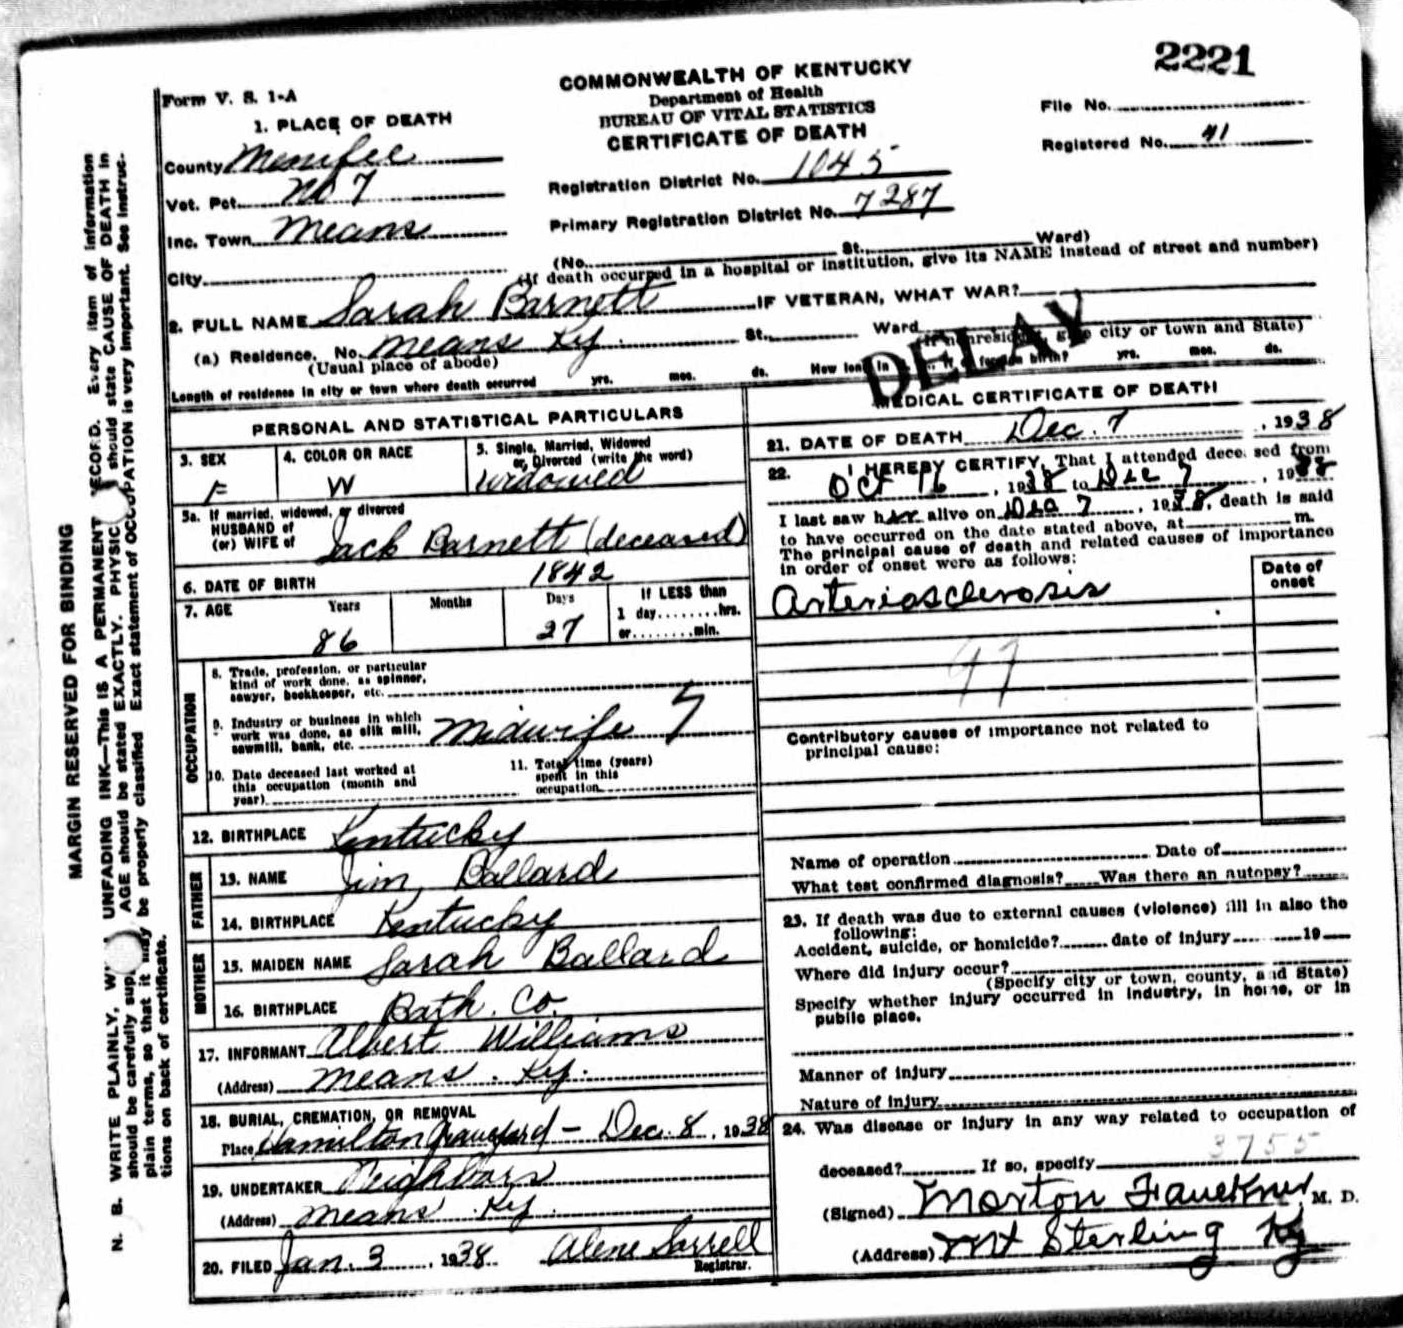 2221
Form V. S. 1-A
COMMONWEALTH OF KENTUCKY
Department of Health
BUREAU OF VITAL STATISTICS
CERTIFICATE OF DEATH
File No.
Registered No. 41
1. PLACE OF DEATH
County Menifee
Vot. Pct. No 7
Inc. Town Means
City
Registration District No. 1045
Primary Registration District No. 7287
(No. St., Ward)
(If death occurred in a hospital or institution, give its NAME instead of street and number)
2. FULL NAME Sarah Barnett IF VETERAN, WHAT WAR?
(a) Residence. No. Means Ky. St., Ward
(Usual place of abode) (If nonresident give city or town and State)
Length of residence in city or town where death occurred yrs. mos. ds. How long in U. S., if of foreign birth? yrs. mos. ds.
DELAY
PERSONAL AND STATISTICAL PARTICULARS
3. SEX F
4. COLOR OR RACE W
5. Single, Married, Widowed or Divorced (write the word) Widowed
5a. If married, widowed, or divorced
HUSBAND of
(or) WIFE of Jack Barnett (deceased)
6. DATE OF BIRTH 1842
7. AGE Years 86 Months Days 27 If LESS than 1 day........hrs. or........min.
OCCUPATION
8. Trade, profession, or particular
kind of work done, as spinner,
sawyer, bookkeeper, etc.
9. Industry or business in which
work was done, as silk mill,
sawmill, bank, etc. Midwife 7
10. Date deceased last worked at
this occupation (month and
year)
11. Total time (years)
spent in this
occupation
12. BIRTHPLACE Kentucky
FATHER
13. NAME Jim Ballard
14. BIRTHPLACE Kentucky
MOTHER
15. MAIDEN NAME Sarah Ballard
16. BIRTHPLACE Bath. Co.
17. INFORMANT Albert Williams
(Address) Means. Ky.
18. BURIAL, CREMATION, OR REMOVAL
Place Hamilton Graveyard - Dec. 8, 1938
19. UNDERTAKER Neighbors
(Address) Means Ky.
20. FILED Jan. 3, 1938 Alene Sorrell
Registrar.
MEDICAL CERTIFICATE OF DEATH
21. DATE OF DEATH Dec. 7, 1938
22. I HEREBY CERTIFY, That I attended deceased from
Oct 16, 1938 to Dec 7, 1938
I last saw her alive on Dec 7, 1938, death is said
to have occurred on the date stated above, at m.
The principal cause of death and related causes of importance
in order of onset were as follows:
Date of onset
Arteriosclerosis
97
Contributory causes of importance not related to
principal cause:
Name of operation Date of
What test confirmed diagnosis? Was there an autopsy?
23. If death was due to external causes (violence) fill in also the
following:
Accident, suicide, or homicide? date of injury 19
Where did injury occur?
(Specify city or town, county, and State)
Specify whether injury occurred in industry, in home, or in
public place.
Manner of injury
Nature of injury
24. Was disease or injury in any way related to occupation of
3755
deceased? If so, specify
(Signed) Morton Faulkner M. D.
(Address) Mt Sterling Ky
MARGIN RESERVED FOR BINDING
N. B. WRITE PLAINLY, UNFADING INK—This IS A PERMANENT RECORD. Every item of information
should be carefully AGE should be stated EXACTLY. should state CAUSE OF DEATH in
plain terms, so that it may be properly classified. Exact statement of OCCUPATION is very important. See instruc-
tions on back of certificate.